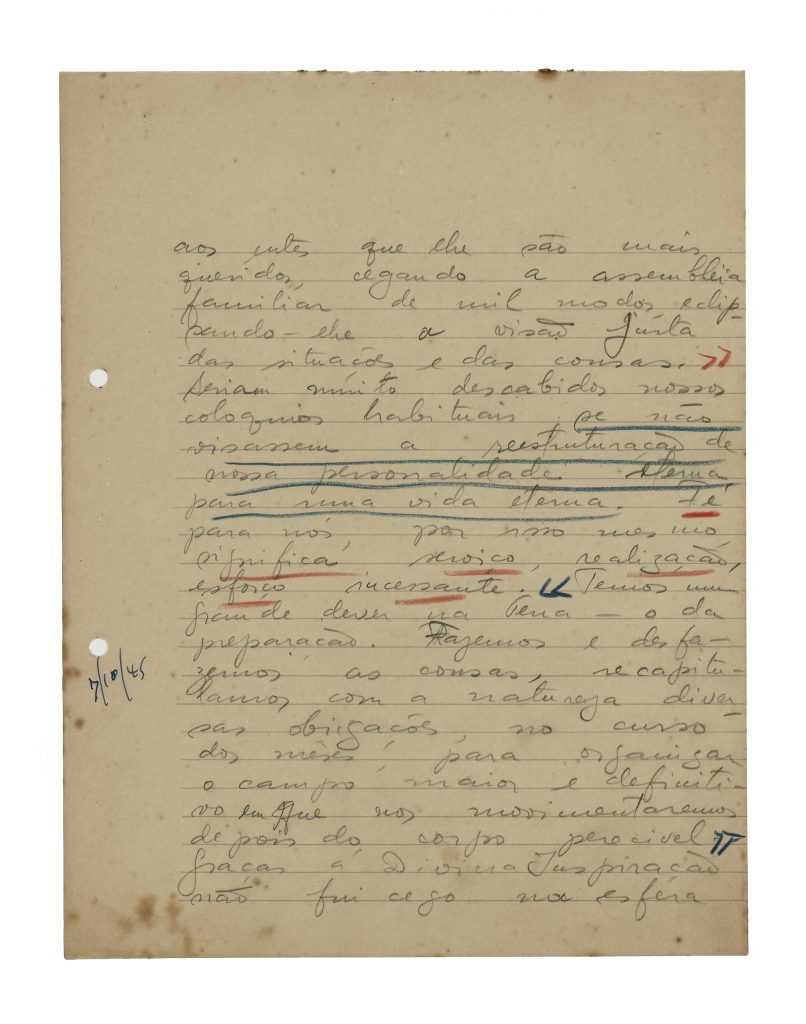 aos entes que lhe são mais
queridos, cegando a assembleia
familiar de mil modos, eclip-
sando-lhe a visão justa
das situações e das cousas. »
Seriam muito descabidos nossos
coloquios habituais se não
visassem a reestruturação de
nossa personalidade eterna
para uma vida eterna. Fé
para nós, por isso mesmo,
significa serviço, realização,
esforço incessante. « Temos um
grande dever na Terra — o da
preparação. Fazemos e desfa-
zemos as cousas, recapitu-
lamos com a natureza diver-
sas obrigações, no curso
dos mêses, para organizar
o campo maior e definiti-
vo em que nos movimentaremos
depois do corpo perecivel »
Graças á Divina Inspiração
não fui cego na esfera
7/10/45